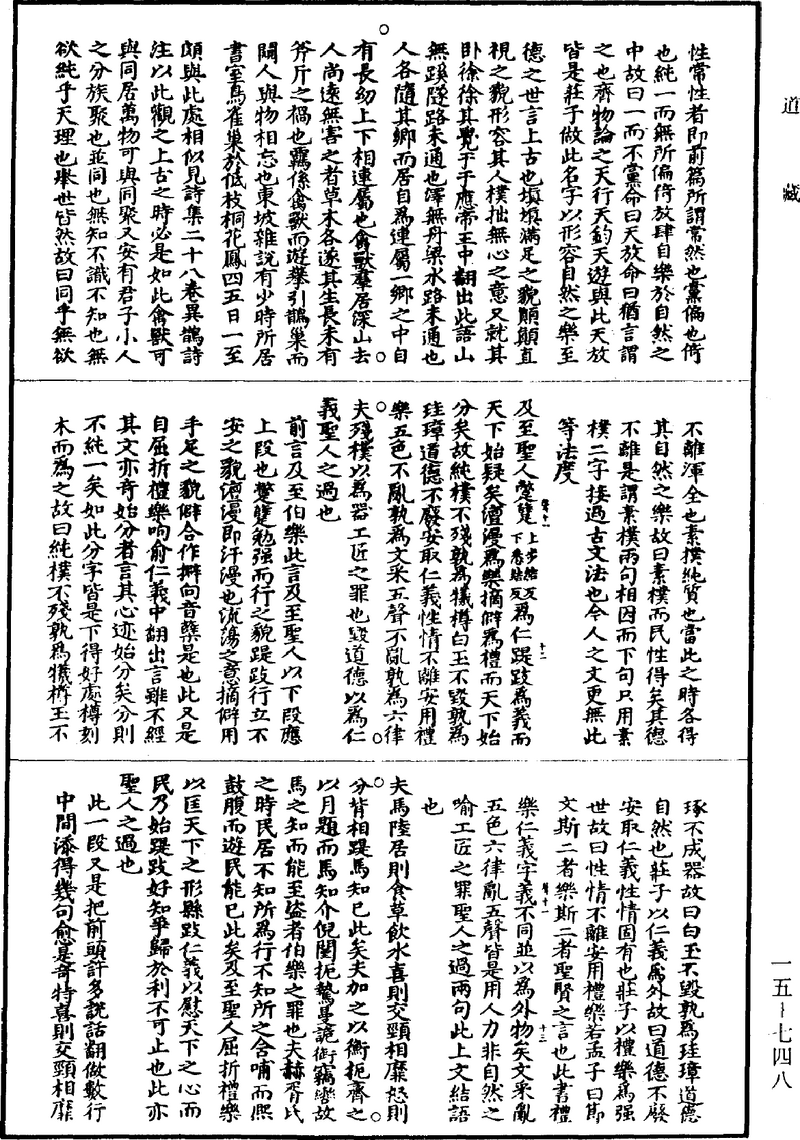 道藏
性常性者即前篇所謂常然也黨偏也倚
也純一而無所偏倚放肆自樂於自然之
中故曰一而不黨命曰天放命曰猶言謂
之也齊物論之天行天鈞天遊與此天放
皆是莊子做此名字以形容自然之樂至
德之世言上古也填填滿足之貌顛顛直
視之貌形容其人樸拙無心之意又就其
臥徐徐其覺于于應帝王中翻出此語山
無蹊隧路未通也澤無舟梁水路未通也
人各隨其鄉而居自為連屬一鄉之中自
有長幼上下相連屬也禽獸羣居深山去
人尚遠無害之者草木各遂其生長未有
斧斤之禍也羈係禽獸而遊攀引鵲巢而
闚人與物相忘也東坡雜說有少時所居
書室鳥雀巢於低枝桐花鳳四五日一至
頗與此處相似見詩集二十八卷異鵲詩
注以此觀之上古之時必是如此禽獸可
與同居萬物可與同聚又安有君子小人
之分族聚也並同也無知不識不知也無
欲純乎天理也舉世皆然故曰同乎無欲
不離渾全也素樸純質也當此之時各得
其自然之樂故曰素樸而民性得矣其德
不離是謂素樸兩句相因而下句只用素
樸二字接過古文法也今人之文更無此
等法度
及至聖人蹩躠上步結反下悉結反為仁踶跂為義而
天下始疑矣澶漫為樂摘僻為禮而天下始
分矣故純樸不殘孰為犧樽白玉不毀孰為
珪璋道德不廢安取仁義性情不離安用禮
樂五色不亂孰為文采五聲不亂孰為六律
夫殘樸以為器工匠之罪也毀道德以為仁
義聖人之過也
前言及至伯樂此言及至聖人以下段應
上段也蹩躠勉强而行之貌踶跂行立不
安之貌澶漫即汗漫也流蕩之意摘僻用
手足之貌僻合作擗向音檗是也此又是
自屈折禮樂呴俞仁義中翻出言雖不經
其文亦奇始分者言其心迹始分矣分則
不純一矣如此分字皆是下得好處樽刻
木而為之故曰純樸不殘孰為犧樽玉不
琢不成器故曰白玉不毀孰為珪璋道德
自然也莊子以仁義為外故曰道德不廢
安取仁義性情固有也莊子以禮樂為强
世故曰性情不離安用禮樂若孟子曰節
文斯二者樂斯二者聖賢之言也此書禮
樂仁義字義不同並以為外物矣文采亂
五色六律亂五聲皆是用人力非自然之
喻工匠之罪聖人之過兩句此上文結語
也
夫馬陸居則食草飲水喜則交頸相靡怒則
分背相踶馬知已此矣夫加之以衡扼齊之
以月題而馬知介倪闉扼鷙曼詭銜竊轡故
馬之知而能至盜者伯樂之罪也夫赫胥氏
之時民居不知所為行不知所之含哺而熙
鼓腹而遊民能已此矣及至聖人屈折禮樂
以匡天下之形縣跂仁義以慰天下之心而
民乃始踶跂好知爭歸於利不可止也此亦
聖人之過也
此一段又是把前頭許多說話翻做數行
中間添得幾句愈是奇特喜則交頸相靡
一五-七四八